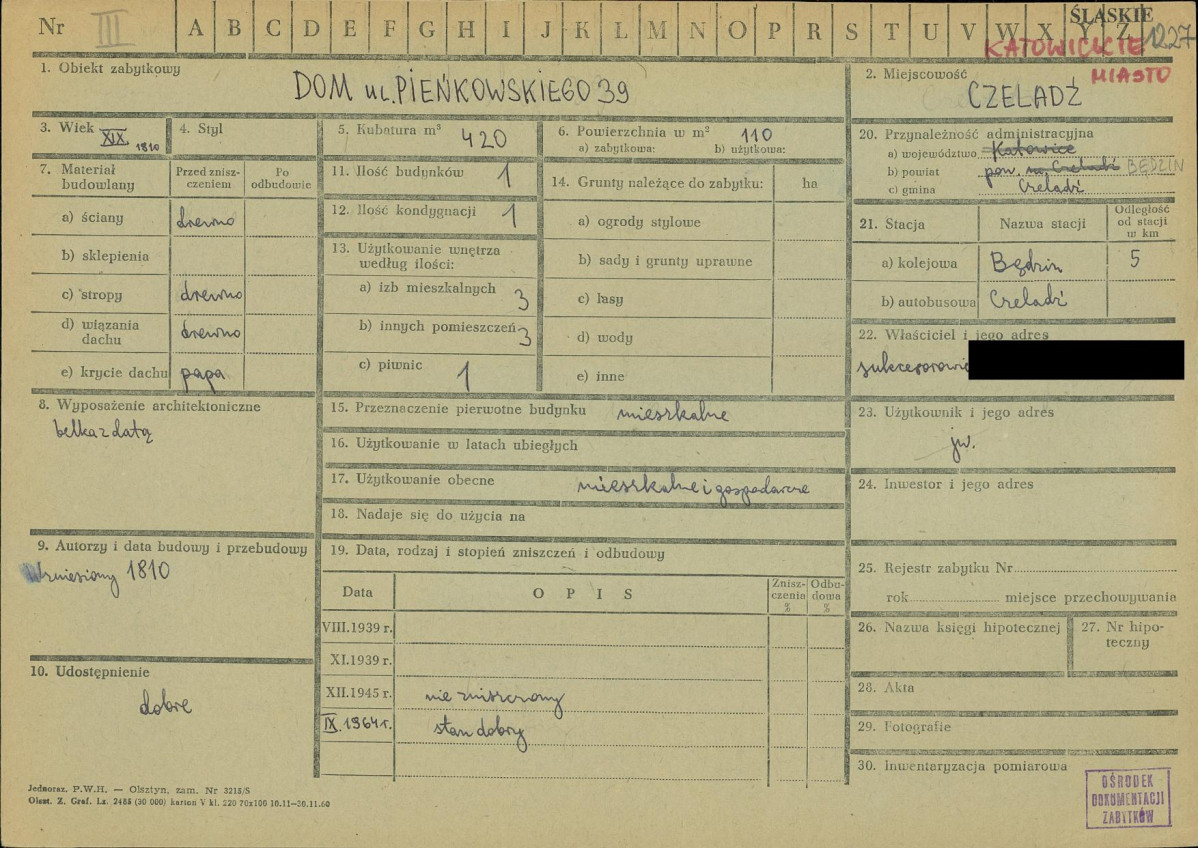 Nr III A B C D E F G H I J K L M N O P R S T U V W X Y Z 1227
ŚLĄSKIE
KATOWICKIE
MIASTO
1. Obiekt zabytkowy
DOM ul. PIEŃKOWSKIEGO 39
2. Miejscowość
CZELADŹ
3. Wiek XIX 1810
4. Styl
5. Kubatura m³ 420
6. Powierzchnia w m² 110
a) zabytkowa: b) użytkowa:
7. Materiał budowlany
Przed znisz-
czeniem
Po
odbudowie
a) ściany drewno
b) sklepienia
c) stropy drewno
d) wiązania
dachu drewno
e) krycie dachu papa
8. Wyposażenie architektoniczne
belka z datą
9. Autorzy i data budowy i przebudowy
Wzniesiony 1810
10. Udostępnienie
dobre
11. Ilość budynków 1
12. Ilość kondygnacji 1
13. Użytkowanie wnętrza
według ilości:
a) izb mieszkalnych 3
b) innych pomieszczeń 3
c) piwnic 1
14. Grunty należące do zabytku: ha
a) ogrody stylowe
b) sady i grunty uprawne
c) lasy
d) wody
e) inne
15. Przeznaczenie pierwotne budynku mieszkalne
16. Użytkowanie w latach ubiegłych
17. Użytkowanie obecne mieszkalne i gospodarcze
18. Nadaje się do użycia na
19. Data, rodzaj i stopień zniszczeń i odbudowy
Data OPIS
Znisz-
czenia
%
Odbu-
dowa
%
VIII.1939 r.
XI.1939 r.
XII.1945 r. nie zniszczony
IX.1964 r. stan dobry
20. Przynależność administracyjna
a) województwo Katowice
b) powiat pow. m. Czeladź BĘDZIN
c) gmina Czeladź
21. Stacja Nazwa stacji
Odległość
od stacji
w km
a) kolejowa Będzin 5
b) autobusowa Czeladź
22. Właściciel i jego adres
sukcesorowie
23. Użytkownik i jego adres
jw.
24. Inwestor i jego adres
25. Rejestr zabytku Nr
rok miejsce przechowywania
26. Nazwa księgi hipotecznej
27. Nr hipo-
teczny
28. Akta
29. Fotografie
30. Inwentaryzacja pomiarowa
OŚRODEK
DOKUMENTACJI
ZABYTKÓW
Jednoraz. P.W.H. — Olsztyn, zam. Nr 3215/S
Olszt. Z. Graf. Lz. 2485 (30 000) karton V kl. 220 70x100 10.11—30.11.60